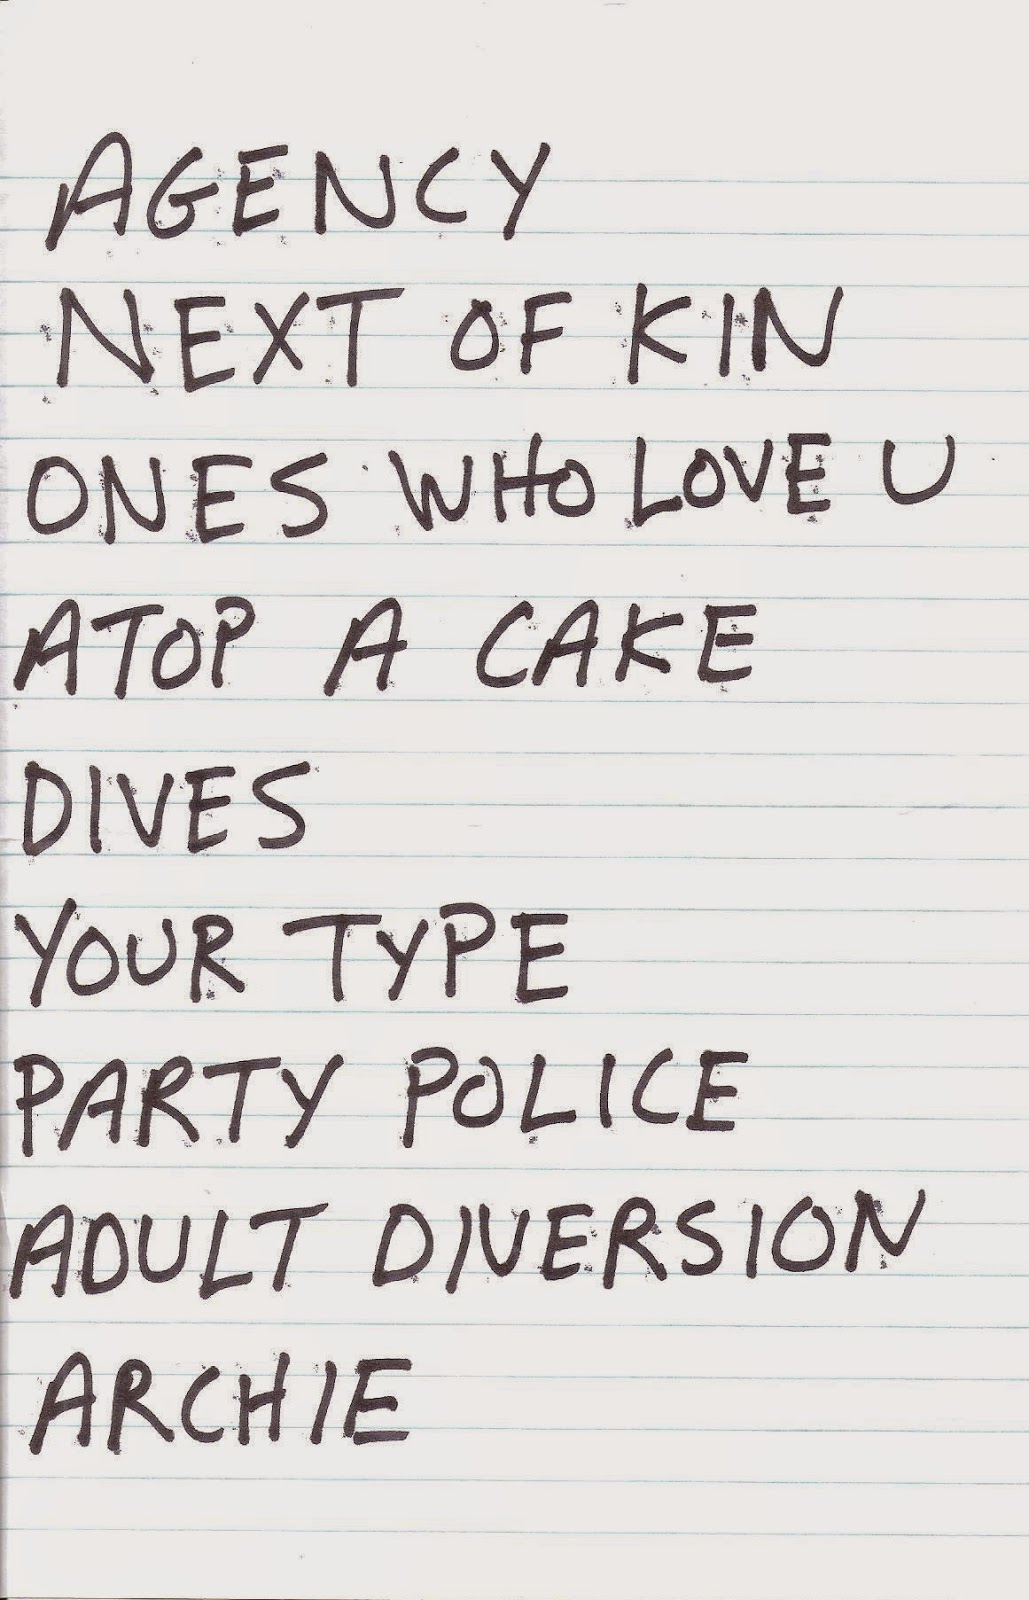 AGENCY
NEXT OF KIN
ONES WHO LOVE U
ATOP A CAKE
DIVES
YOUR TYPE
PARTY POLICE
ADULT DIVERSION
ARCHIE